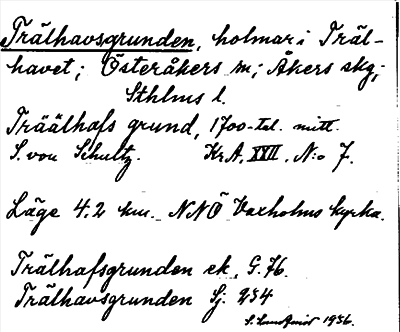 Trälhavsgrunden, holmar i Träl-
havet; Österåkers sn; Åkers skg;
Sthlms l.
Träälhafs grund, 1700-tal. mitt.
S. von Schultz. Kr.A. XXII. N:o 7.
Läge 4.2 km. NNÖ Vaxholms kyrka.
Trälhafsgrunden ek. G.76.
Trälhavsgrunden Sj. 234
1936.